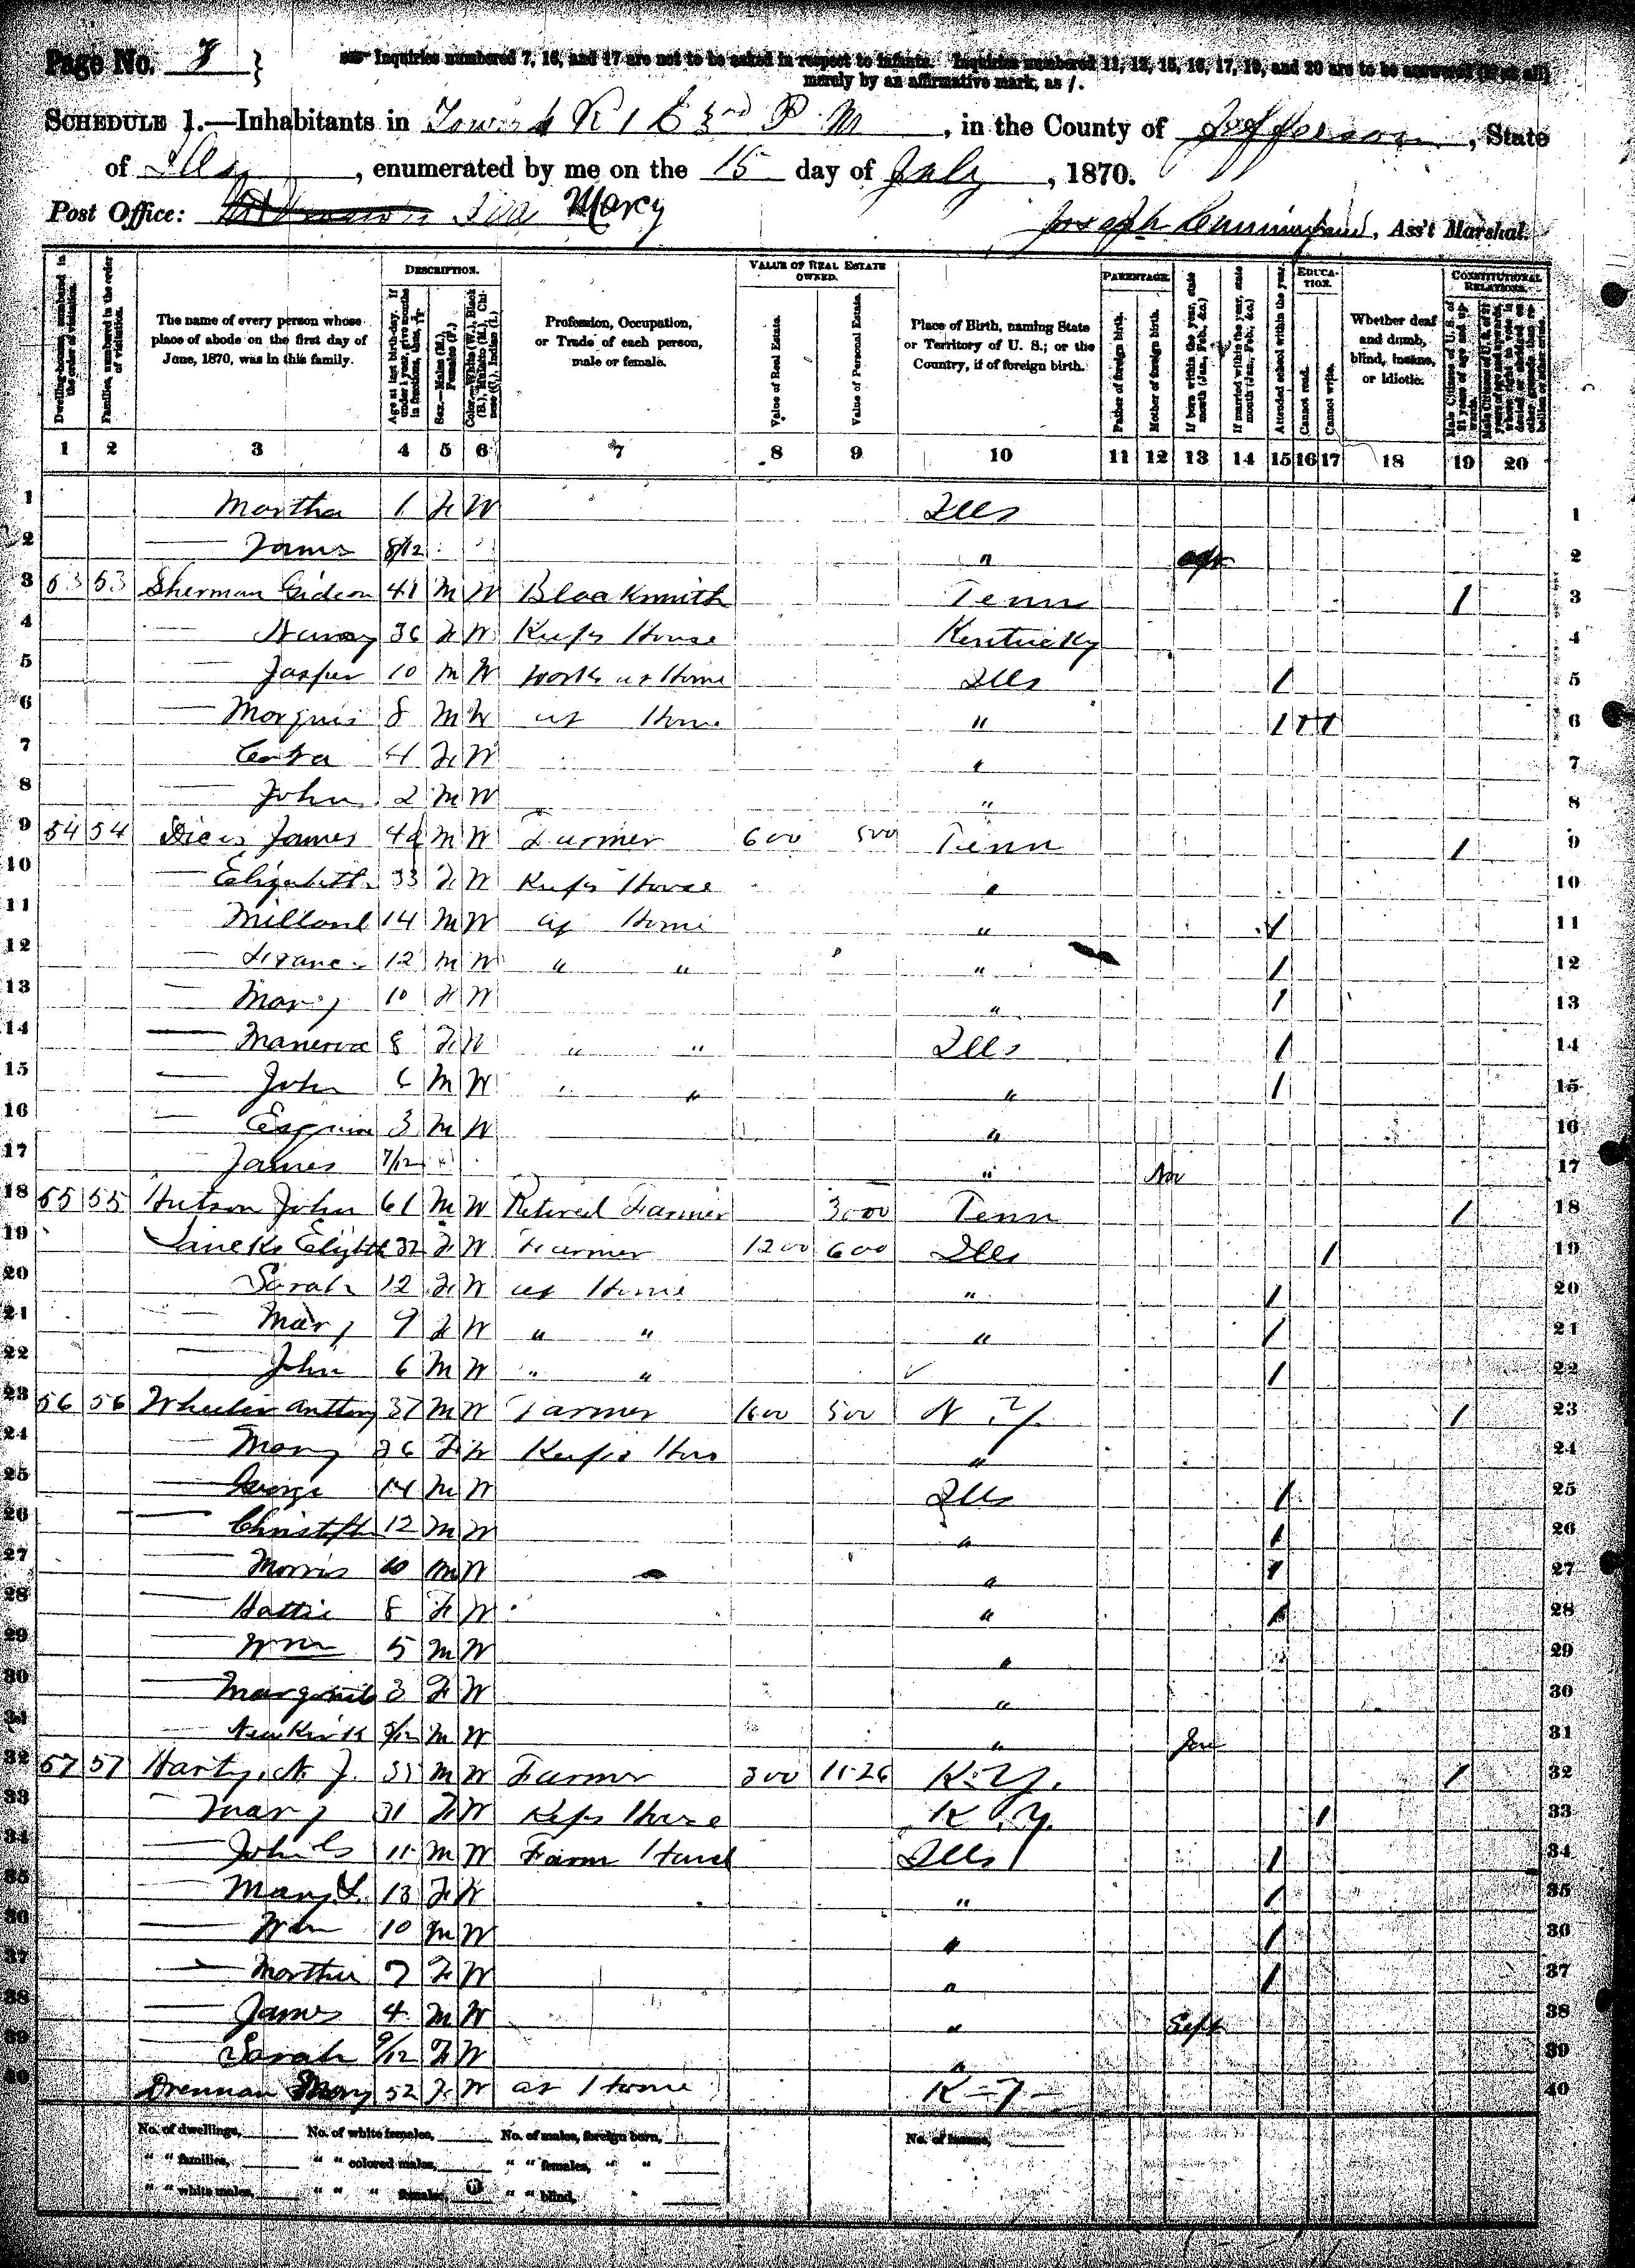 Page No. 7
Inquiries numbered 7, 16, and 17 are not to be asked in respect to infants. Inquiries numbered 11, 12, 15, 16, 17, 19, and 20 are to be answered (if at all)
merely by an affirmative mark, as /.
SCHEDULE 1.—Inhabitants in R 1 E 3rd P M, in the County of Jefferson, State
of Ills, enumerated by me on the 15 day of July, 1870.
Post Office: Marcy
Joseph, Ass't Marshal.
Dwelling-houses, numbered in the order of visitation.
Families, numbered in the order of visitation.
The name of every person whose place of abode on the first day of June, 1870, was in this family.
DESCRIPTION.
Age at last birth-day. If under 1 year, give months in fractions, thus, 3/12
Sex.—Males (M.), Females (F.)
Color.—White (W.), Black (B.), Mulatto (M.), Chinese (C.), Indian (I.)
Profession, Occupation, or Trade of each person, male or female.
VALUE OF REAL ESTATE OWNED.
Value of Real Estate.
Value of Personal Estate.
Place of Birth, naming State or Territory of U. S.; or the Country, if of foreign birth.
PARENTAGE.
Father of foreign birth.
Mother of foreign birth.
If born within the year, state month (Jan., Feb., &c.)
If married within the year, state month (Jan., Feb., &c.)
Attended school within the year.
EDUCATION.
Cannot read.
Cannot write.
Whether deaf and dumb, blind, insane, or idiotic.
CONSTITUTIONAL RELATIONS.
Male Citizens of U. S. of 21 years of age and upwards.
1 2 3 4 5 6 7 8 9 10 11 12 13 14 15 16 17 18 19 20
1 Martha 1 F W Ills 1
2 8/12 " 2
3 53 53 Sherman Gideon 41 M W Blacksmith Tenn / 3
4 — 36 F W Keeps House Kentucky 4
5 — Jasper 10 M W Works at Home Ills / 5
6 — Morquis 8 M W at Home " / / / 6
7 — 4 F W " 7
8 — John 2 M W " 8
9 54 54 James M W Farmer 600 500 Tenn / 9
10 — Elizabeth 33 F W Keeps House " 10
11 — Millard 14 M W at Home " / 11
12 — 12 M W " " " / 12
13 — Mary 10 F W " / 13
14 — Manerva 8 F W " " Ills / 14
15 — John 6 M W " " " / 15
16 — Esquire 3 M W " 16
17 — James 7/12 " Nov 17
18 55 55 Hutson John 61 M W Retired Farmer 3000 Tenn / 18
19 32 F W Farmer 1200 600 Ills / 19
20 Sarah 12 F W at Home " / 20
21 — Mary 9 F W " " " / 21
22 — John 6 M W " " / 22
23 56 56 Wheeler Anthony 37 M W Farmer 500 N. Y. / 23
24 — Mary 36 F W Keeps Hous " 24
25 — George 14 M W Ills / 25
26 — Christoph 12 M W " / 26
27 — Morris 10 M W " / 27
28 — Hattie 8 F W " / 28
29 — Wm 5 M W " 29
30 — 3 F W " 30
31 — Newkirk 5/12 M W " Jan 31
32 57 57 M W Farmer 300 1126 K. Y. / 32
33 — Mary 31 F W Keps House K. Y. / 33
34 — John 11 M W Farm Hand Ills / 34
35 — Mary L. 13 F W " / 35
36 — Wm 10 M W " / 36
37 — Martha 7 F W " / 37
38 — James 4 M W " Sept 38
39 — Sarah 9/12 F W " 39
40 Drennan Mary 52 F W at Home K—Y— 40
No. of dwellings, No. of white females, No. of males, foreign born, No. of insane,
" " families, " " colored males, " " females, " "
" " white males, " " " females, " " blind,